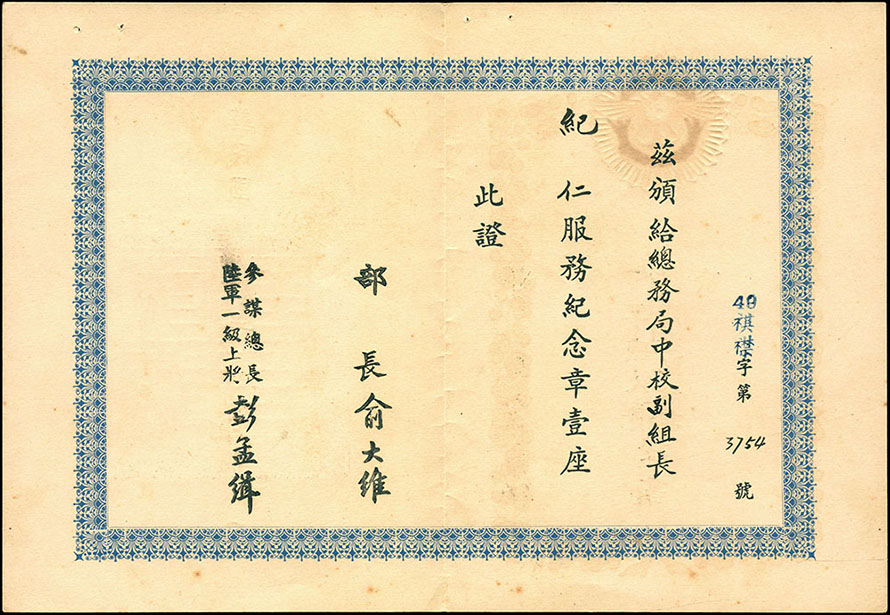 49祺襟字第 3754 號
茲頒給總務局中校副組長
紀 仁服務紀念章壹座
此證
部 長 俞大維
參謀總長
陸軍一級上將 彭孟緝